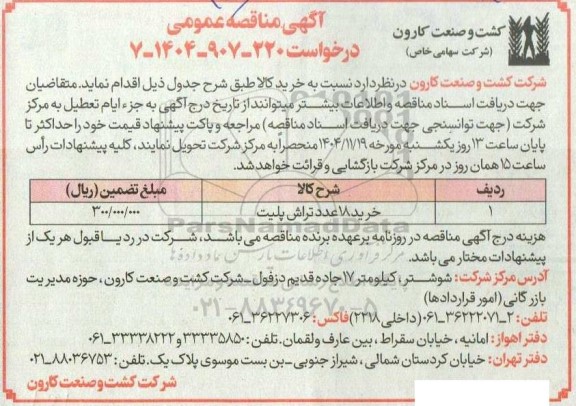 کشت و صنعت کارون
(شرکت سهامی خاص)
آگهی مناقصه عمومی
درخواست ۲۲۰-۹۰۷-۱۴۰۴-۷
شرکت کشت و صنعت کارون در نظر دارد نسبت به خرید کالا طبق شرح جدول ذیل اقدام نماید. متقاضیان
جهت دریافت اسناد مناقصه و اطلاعات بیشتر میتوانند از تاریخ درج آگهی به جزء ایام تعطیل به مرکز
شرکت (جهت توانسنجی جهت دریافت اسناد مناقصه) مراجعه و پاکت پیشنهاد قیمت خود را حداکثر تا
پایان ساعت ۱۳ روز یکشنبه مورخه ۱۴۰۴/۱۱/۱۹ منحصراً به مرکز شرکت تحویل نمایند، کلیه پیشنهادات رأس
ساعت ۱۵ همان روز در مرکز شرکت بازگشایی و قرائت خواهد شد.
ردیف شرح کالا مبلغ تضمین (ریال)
۱ خرید ۱۸ عدد تراش پلیت ۳۰۰/۰۰۰/۰۰۰
هزینه درج آگهی مناقصه در روزنامه بر عهده برنده مناقصه می باشد، شرکت در رد یا قبول هر یک از
پیشنهادات مختار می باشد.
آدرس مرکز شرکت: شوشتر، کیلومتر ۱۷ جاده قدیم دزفول - شرکت کشت و صنعت کارون، حوزه مدیریت
بازرگانی (امور قراردادها)
تلفن: ۲-۳۶۲۲۲۰۷۱-۰۶۱ (داخلی ۲۲۱۸) فاکس: ۳۶۲۲۷۳۰۶-۰۶۱
دفتر اهواز: امانیه، خیابان سقراط، بین عارف و لقمان. تلفن: ۳۳۳۳۵۸۵۰ و ۳۳۳۳۸۲۲۲-۰۶۱
دفتر تهران: خیابان کردستان شمالی، شیراز جنوبی - بن بست موسوی پلاک یک. تلفن: ۸۸۰۳۶۷۵۳-۰۲۱
شرکت کشت و صنعت کارون
ParsNamadData
۰۲۱-۸۸۳۴۹۶۷۰-۵